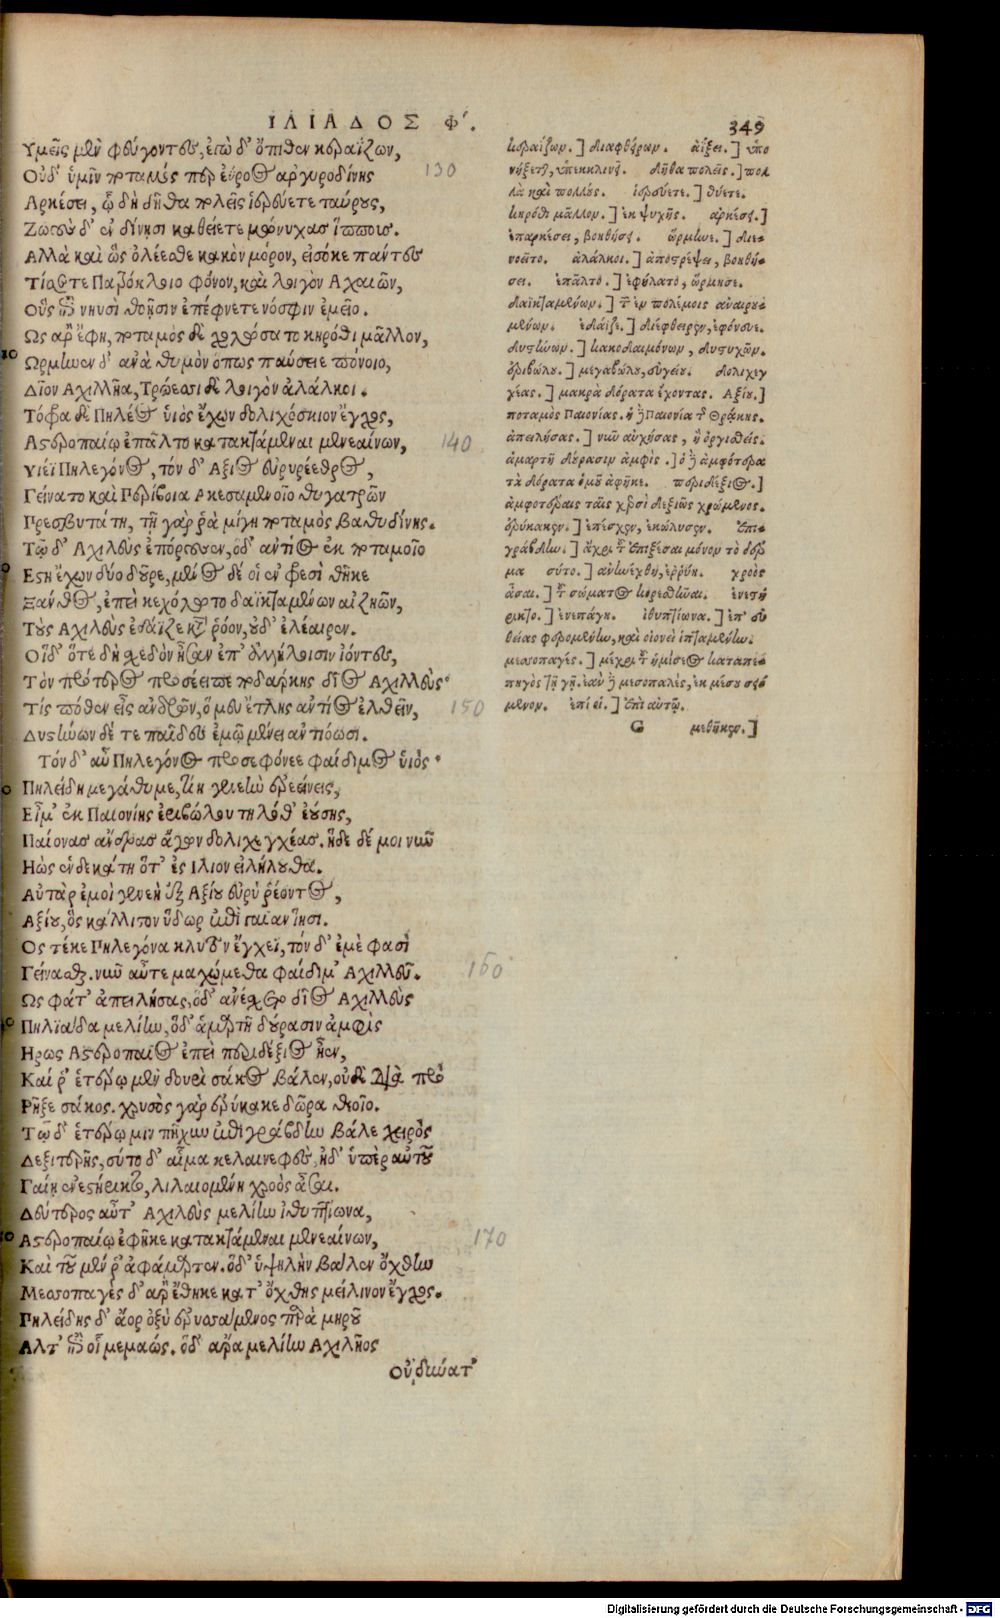 ΙΛΙΑΔΟΣ Φ΄.
349
Υμεῖς μὲν φεύγοντες, ἐγὼ δ' ὄπιθεν κεραΐζων,
Οὐδ' ὑμῖν ποταμός περ ἐΰρροος ἀργυροδίνης
130
Αρκέσει, ᾧ δὴ δῆθα πολεῖς ἱερεύετε ταύρους,
Ζωοὺς δ' ἐν δίνῃσι καθίετε μώνυχας ἵππους.
Αλλὰ καὶ ὣς ὀλέεσθε κακὸν μόρον, εἰσόκε πάντες
Τίσετε Πατρόκλοιο φόνον, καὶ λοιγὸν Αχαιῶν,
Οὓς ἐπὶ νηυσὶ θοῇσιν ἐπέφνετε νόσφιν ἐμεῖο.
Ως ἄρ' ἔφη, ποταμὸς δὲ χολώσατο κηρόθι μᾶλλον,
Ωρμηνεν δ' ἀνὰ θυμὸν ὅπως παύσειε πόνοιο,
Δῖον Αχιλλῆα, Τρώεσσι δὲ λοιγὸν ἀλάλκοι.
Τόφρα δὲ Πηλέος ὑιὸς ἔχων δολιχόσκιον ἔγχος,
Αστεροπαίῳ ἐπᾶλτο κατακτάμεναι μενεαίνων,
140
Υιέϊ Πηλεγόνος, τόν δ' Αξιὸς εὐρυρέεθρος,
Γείνατο καὶ Περίβοια Ακεσαμενοῖο θυγατρῶν
Πρεσβυτάτη, τῇ γὰρ ῥὰ μίγη ποταμὸς βαθυδίνης.
Τῷ δ' Αχιλεὺς ἐπόρουσεν, ὅδ' αντίος ἐκ ποταμοῖο
Εστη ἔχων δύο δοῦρε, μένος δέ οἱ ἐν φρεσὶ θῆκε
Ξάνθος, ἐπεὶ κεχόλωτο δαϊκταμένων αἰζηῶν,
Τοὺς Αχιλεὺς ἐδάϊζε κατὰ ῥόον, οὐδ' ἐλέαιρεν.
Οἱδ' ὅτε δὴ σχεδὸν ἦσαν ἐπ' ἀλλήλοισιν ἰόντες,
Τὸν πρότερος προσέειπε ποδάρκης δῖος Αχιλλεύς·
Τίς πόθεν εἶς ἀνδρῶν, ὅ μευ ἔτλης αντίος ἐλθεῖν,
150
Δυστήνων δέ τε παῖδες ἐμῷ μένει αντιόωσι.
Τόν δ' αὖ Πηλεγόνος προσεφώνεε φαίδιμος ὑιός·
Πηλείδη μεγάθυμε, τίη γενεὴν ἐρεείνεις,
Εἴμ' ἐκ Παιονίης ἐριβώλου τηλόθ' ἐούσης,
Παίονας ἄνδρας ἄγων δολιχεγχέας. ἥδε δέ μοι νῦν
Ηὼς ἑνδεκάτη ὅτ' ἐς Ιλιον εἰλήλουθα.
Αὐτὰρ ἐμοὶ γενεὴ ἐξ Αξίου εὐρὺ ῥέοντος,
Αξίου, ὃς κάλλιστον ὕδωρ ἐπὶ γαῖαν ἵησι.
Ος τέκε Πηλεγόνα κλυτὸν ἔγχεϊ, τόν δ' ἐμέ φασὶ
Γείνασθαι. νῦν αὖτε μαχώμεθα φαίδιμ' Αχιλλεῦ.
160
Ως φάτ' ἀπειλήσας, ὅδ' ἀνέσχετο δῖος Αχιλλεὺς
Πηλϊάδα μελίην, ὅδ' ἁμαρτῆ δούρασιν ἀμφὶς
Ηρως Αστεροπαῖος ἐπεὶ περιδέξιος ἦεν,
Καί ῥ' ἑτέρῳ μὲν δουρὶ σάκος βάλεν, οὐδὲ διὰ πρὸ
Ρῆξε σάκος. χρυσὸς γὰρ ἐρύκακε δῶρα θεοῖο.
Τῷ δ' ἑτέρῳ μιν πῆχυν ἐπὶ γράβδην βάλε χειρὸς
Δεξιτερῆς, σύτο δ' αἷμα κελαινεφὲς, ἡδ' ὑπὲρ αὐτοῦ
Γαίῃ ἐνεστήρικτο, λιλαιομένη χροὸς ἆσαι.
Δεύτερος αὖτ' Αχιλεὺς μελίην ἰθυπτίωνα,
Αστεροπαίῳ ἐφῆκε κατακτάμεναι μενεαίνων,
170
Καὶ τοῦ μέν ῥ' ἀφάμαρτεν. ὅδ' ὑψηλὴν βάλεν ὄχθην
Μεσσοπαγὲς δ' ἄρ' ἔθηκε κατ' ὄχθης μείλινον ἔγχος.
Πηλείδης δ' ἄορ ὀξὺ ἐρυσσάμενος παρὰ μηροῦ
Αλτ' ἐπὶ οἷ μεμαώς. ὅδ' ἄρα μελίην Αχιλῆος
Οὐ δύνατ'
κεραΐζων.] διαφθείρων. ἀΐξει.] ὑπο
νήξεται, ὑπεκκλινεῖ. δῆθα πολεῖς.] πολ
λὰ καὶ πολλούς. ἱερεύετε.] θύετε.
κηρόθι μᾶλλον.] ἐκ ψυχῆς. ἀρκέσει.]
ἐπαρκέσει, βοηθήσει. ὥρμηνε.] διε-
νοεῖτο. ἀλάλκοι.] ἀποτρέψει, βοηθή-
σει. ἐπᾶλτο.] ἐφήλατο, ὥρμησε.
δαϊκταμένων.] τῶν ἐν πολέμοις ἀναιρου-
μένων. ἐδάϊζε.] διέφθειρεν, ἐφόνευε.
δυστήνων.] κακοδαιμόνων, δυστυχῶν.
ἐριβώλου.] μεγαβώλου, εὐγείου. δολιχεγ
χέας.] μακρὰ δόρατα ἔχοντας. Αξίου.]
ποταμὸς Παιονίας. ἡ δὲ Παιονία τῆς Θράκης.
ἀπειλήσας.] νῦν αὐχήσας, ἢ ὀργισθείς.
ἁμαρτῇ δούρασιν ἀμφίς.] ὁ δὲ ἀμφότερα
τὰ δόρατα ὁμοῦ ἀφῆκε. περιδέξιος.]
ἀμφοτέραις ταῖς χερσὶ δεξιῶς χρώμενος.
ἐρύκακεν.] ἐπέσχεν, ἐκώλυσεν. ἐπι-
γράβδην.] ἄχρι τοῦ ἐπιξέσαι μόνον τὸ δέρ
μα σύτο.] ἀνηνέχθη, ἐρρύη. χροὸς
ἆσαι.] τοῦ σώματος κορεσθῆναι. ἐνεστή
ρικτο.] ἐνεπάγη. ἰθυπτίωνα.] ἐπ' εὐ
θείας φερομένην, καὶ οἱονεὶ ἱπταμένην.
μεσοπαγές.] μέχρι τοῦ ἡμίσεος καταπε-
πηγὸς τῇ γῇ. ἐὰν δὲ μεσοπαλές, ἐκ μέσου σειό
μενον. ἐπί οἱ.] ἐπὶ αὐτῷ.
G μεθῆκεν.]
Digitalisierung gefördert durch die Deutsche Forschungsgemeinschaft - DFG